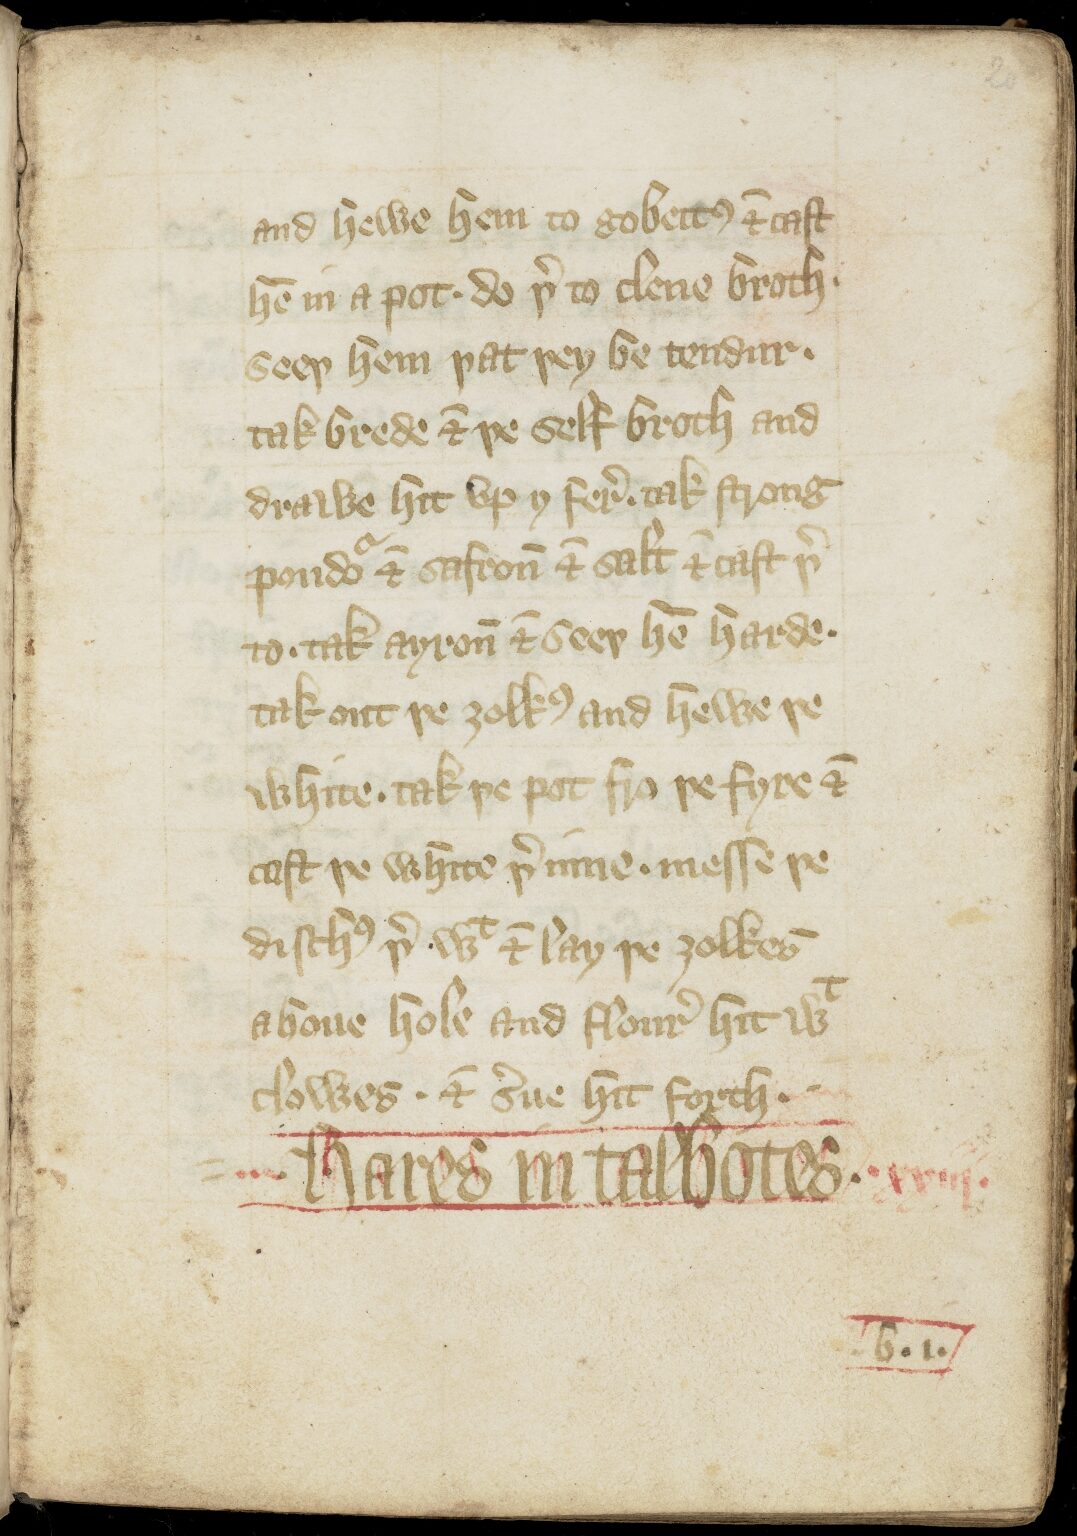 20
and hewe hem to gobettꝰ ⁊̄ cast
hē in a pot · do þ̾ to clene broth ·
seeþ hem þat þey be tendur ·
tak brede ⁊̄ þe self broth and
drawe hit vp y fer̾ · tak strong
poudoͬ ⁊̄ safron̄ ⁊̄ salt ⁊̄ cast þ̾
to · tak ayron̄ ⁊̄ seeþ hē harde ·
tak out þe ȝolkꝰ and hewe þe
white · tak þe pot fro þe fyre ⁊̄
cast þe white þ̾ inne · messe þe
dischꝰ þ̾ · wͭ ⁊̄ lay þe ȝolkes
aboue hole and flour̾ hit wͭ
clowes · ⁊̄ s̾ue hit forth · -
· hares in talbotes · · xxiij ·
· b · 1 ·